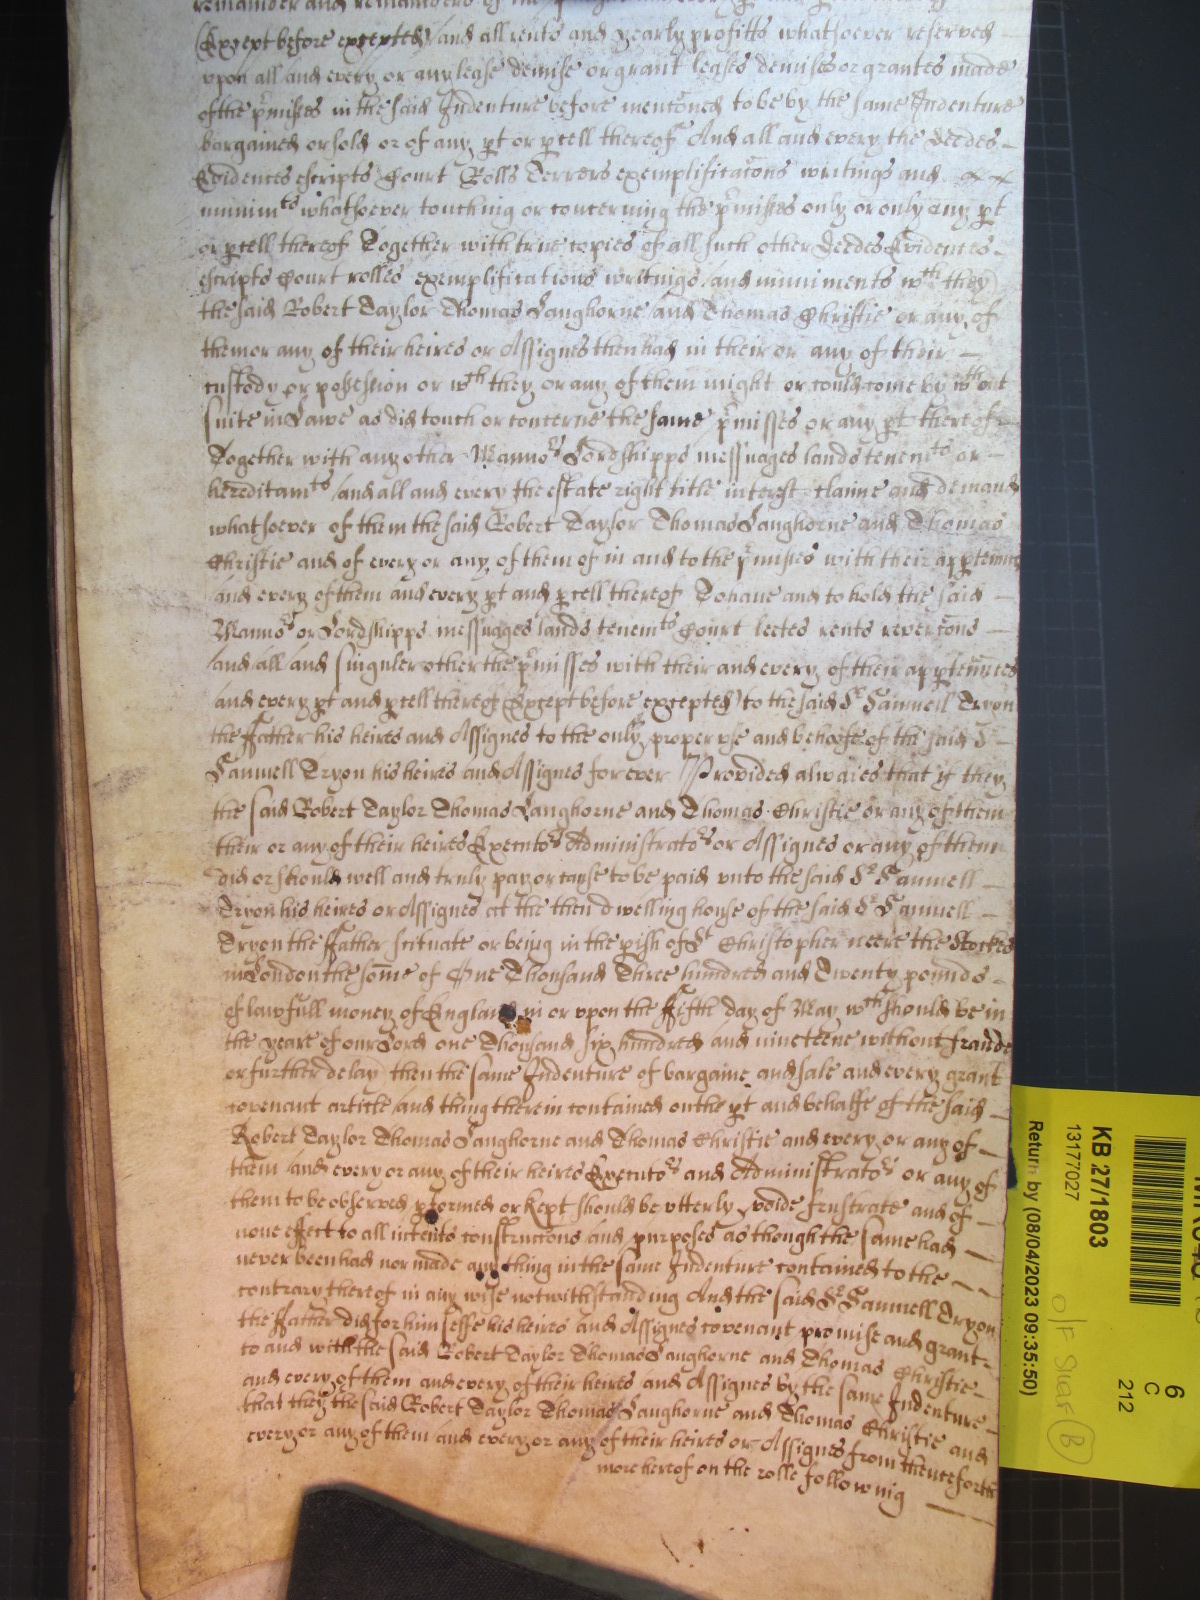 remainder and remainders of the
(Except before excepted) and all rents and yearly profitts whatsoever reserved
upon all and every or any lease demise or grant leases demises or grantes made
of the p̄misses in the said Indenture before mentōned to be by the same Indenture
bargained or sold or of any p̱t or p̱cell thereof And all and every the Deedes
Evidences escripts Court Rolls Terrers exemplificatōns writings and
munimts whatsoever touching or concerning the p̄misses only or only any p̱t
or p̱cell thereof Together with true copies of all such other Deedes Evidences
escripts Court rolles exemplifications writings and muniments wch they
the said Robert Taylor Thomas Langhorne and Thomas Christie or any of
them or any of their heires or Assignes then had in their or any of their
custody or possession or wch they or any of them might or could come by wthout
suite in Lawe as did touch or concerne the same p̄misses or any p̱t thereof
Together with any other Manno:rs Lordshipps messuages lands tenemts or
hereditamts and all and every the estate right title interest claime and demand
whatsoever of them the said Robert Taylor Thomas Langhorne and Thomas
Christie and of every or any of them of in and to the p̄misses with their app̱tennces
and every of them and every p̱t and p̱cell thereof To have and to hold the said
Manno:rs or Lordshipps messuages lands tenemts Court leetes rents revercōns
and all and singuler other the p̄misses with their and every of their app̱tennces
and every p̱t and p̱cell thereof (Except before excepted) to the said Sr Samuell Tryon
the Father his heires and Assignes to the only proper use and behoofe of the said Sr
Samuell Tryon his heires and Assignes for ever Provided alwaies that if they
the said Robert Taylor Thomas Langhorne and Thomas Christie or any of them
their or any of their heires Executors Administrators or Assignes or any of them
did or should well and truly pay or cause to be paid unto the said Sr Samuell
Tryon his heires or Assignes at the then dwelling house of the said Sr Samuell
Tryon the Father scituate or being in the p̱ish of St Christopher neere the Stockes
in London the some of One Thousand Three hundred and Twenty pounds
of lawfull money of England in or upon the Fifth day of May wch should be in
the yeare of our Lord one Thousand six hundred and nineteene without fraude
or further delay then the same Indenture of bargaine and sale and every grant
covenant article and thing therein contained on the p̱t and behalfe of the said
Robert Taylor Thomas Langhorne and Thomas Christie and every or any of
them and every or any of their heires Executors and Administrators or any of
them to be observed p̱formed or kept should be utterly voide frustrate and of
none effect to all intents constructōns and purposes as though the same had
never been had nor made any thing in the same Indenture contained to the
contrary thereof in any wise notwithstanding And the said Sr Samuell Tryon
the Father did for himselfe his heires and Assignes covenant promise and grant
to and with the said Robert Taylor Thomas Langhorne and Thomas Christie
and every of them and every of their heires and Assignes by the same Indenture
that they the said Robert Taylor Thomas Langhorne and Thomas Christie and
every or any of them and every or any of their heires or Assignes from thenceforth
more hereof on the rolle following
KB 27/1803
13177027
Return by (08/04/2023 09:35:50)
6
C
212